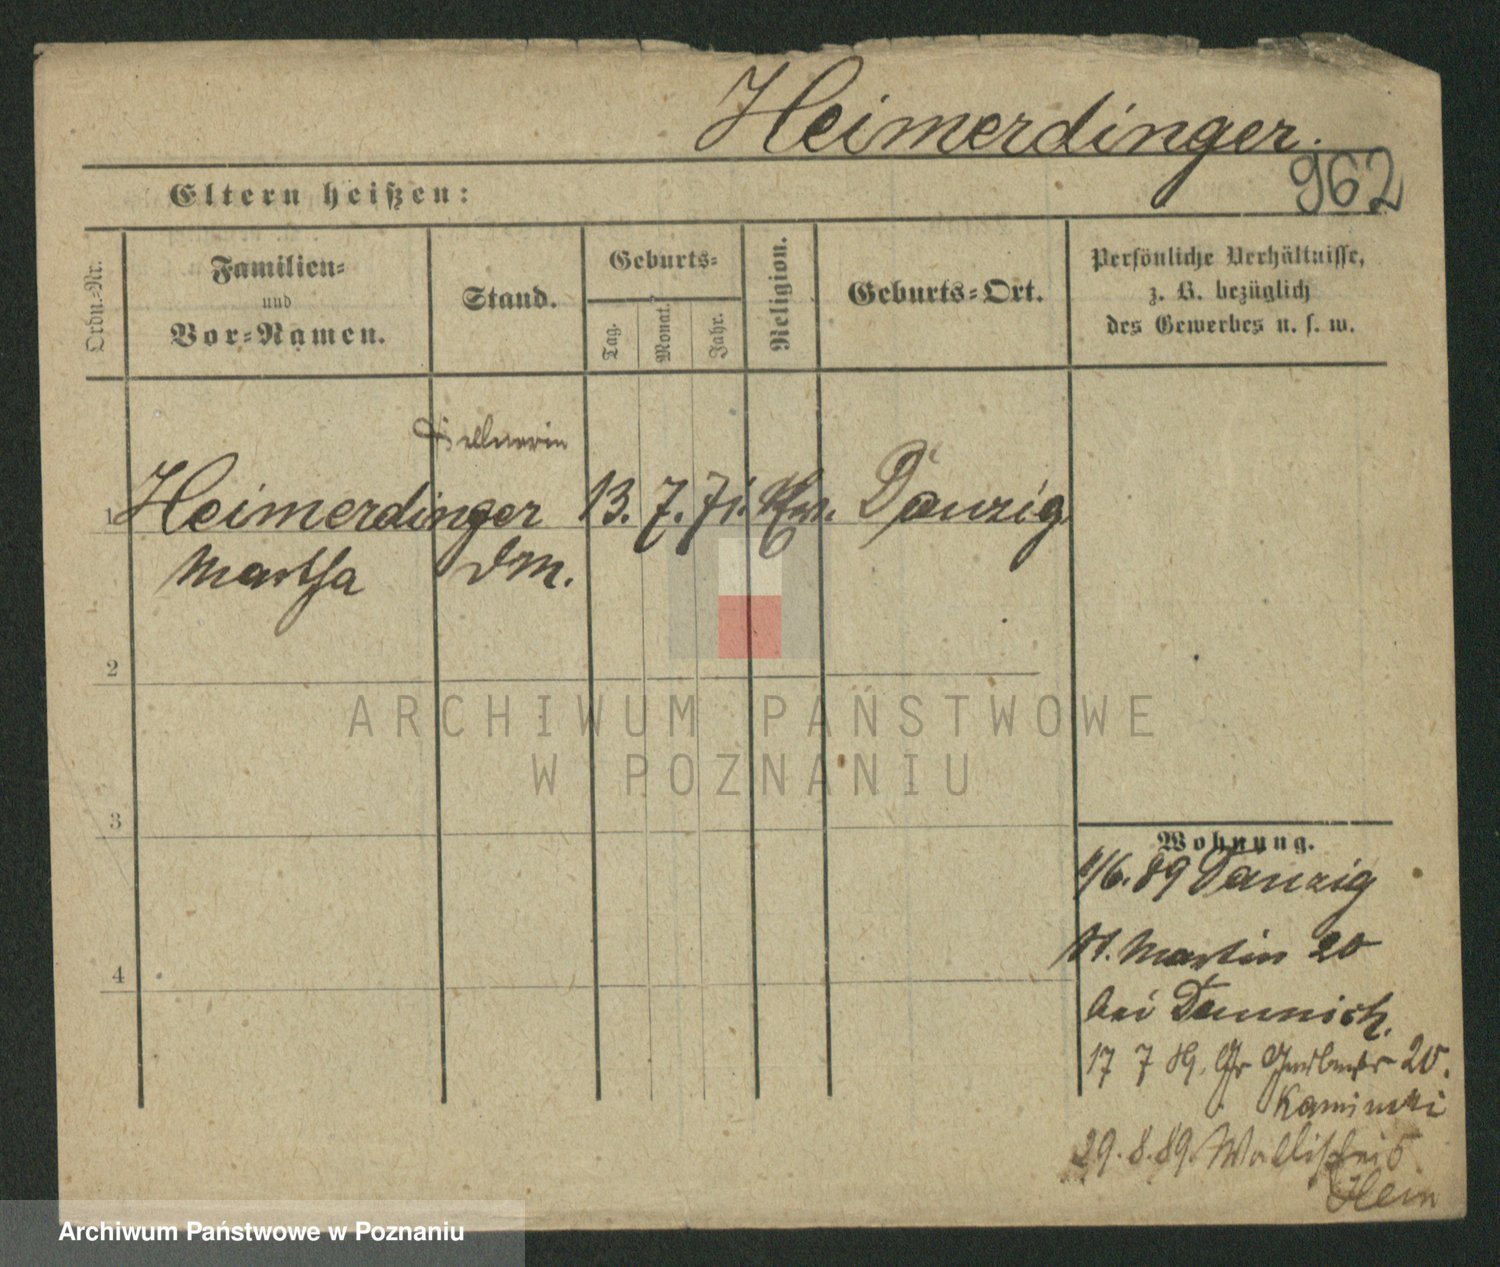 Heimerdinger.
962
Eltern heißen:
Ordn.-Nr.
Familien-
und
Vor-Namen.
Stand.
Geburts-
Tag.
Monat.
Jahr.
Religion.
Geburts-Ort.
Persönliche Verhältnisse,
z. B. bezüglich
des Gewerbes u. s. w.
Kellnerin
1 Heimerdinger 13. 7. 71. Danzig
Martha
2
3
4
Wohnung.
/6. 89 Danzig
St. Martin 20
bei
17 7 89. Gr Gerberstr 20.
Kaminski
29. 8. 89. Wallischei 6
ARCHIWUM PAŃSTWOWE
W POZNANIU
Archiwum Państwowe w Poznaniu